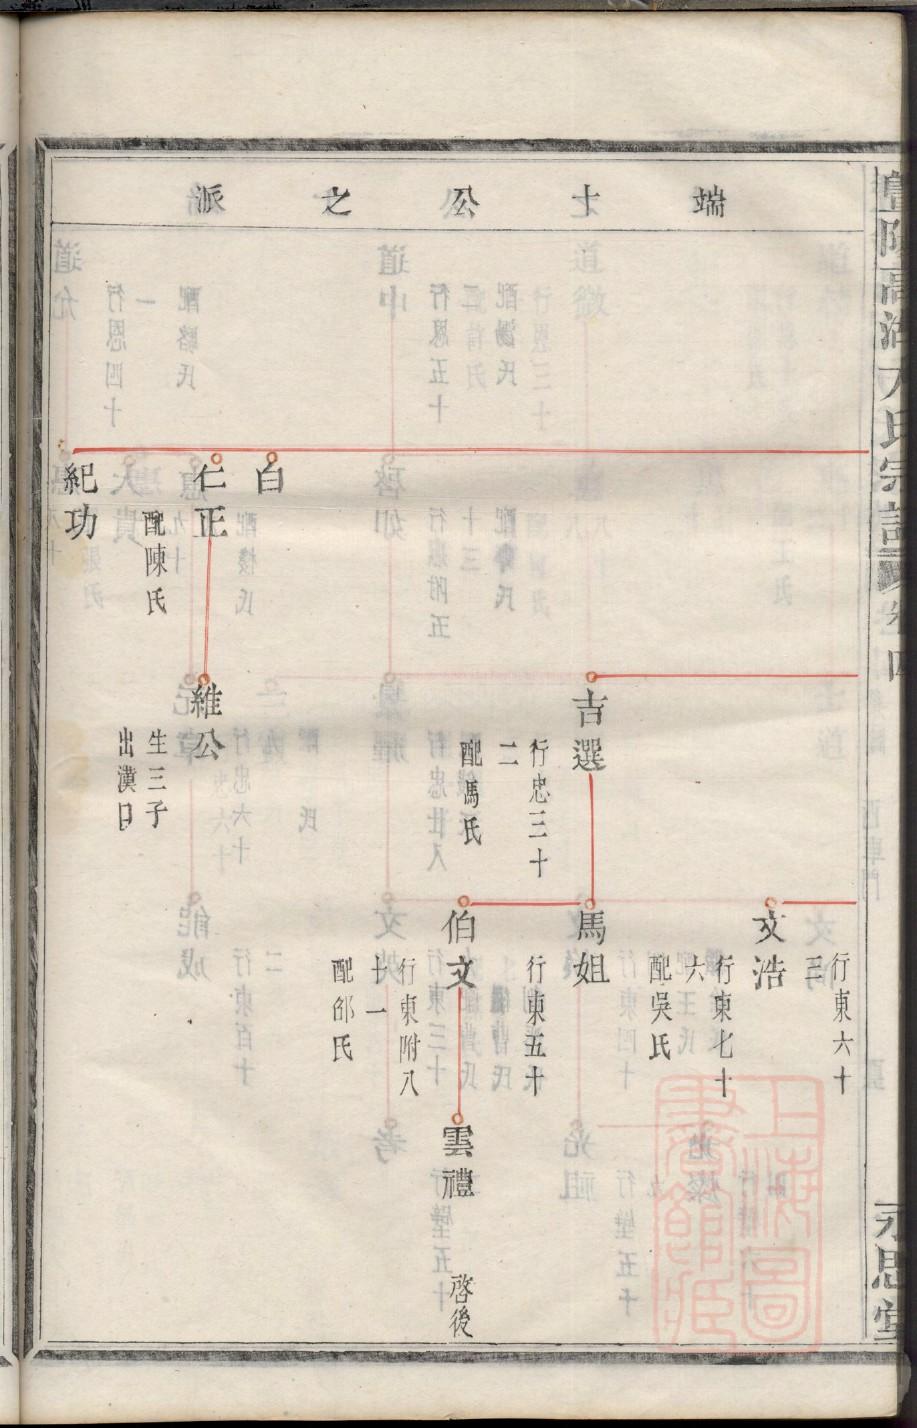 端士公之派
白
仁正
配陳氏
紀功
吉選
行忠三十
二
配馬氏
維公
生三子
出漢口
行東六十
三
文浩
行東七十
六
配吳氏
馬姐
行東五十
伯文
行東附八
十一
配邰氏
雲禮
啓後
高湖
氏宗譜
卷四
永思堂